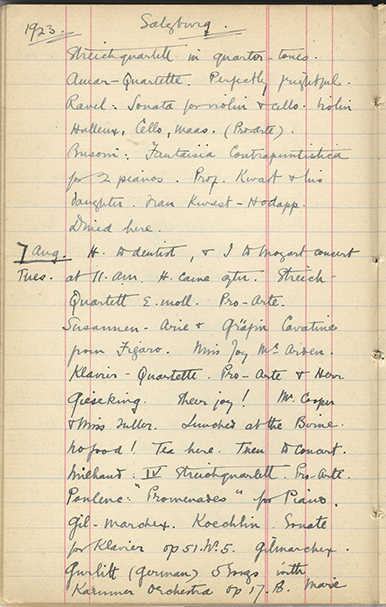 1923. Salzburg.
Streichquartett in quarter-tones.
Amar-Quartette. Perfectly frightful.
Ravel: Sonata for violin & cello. Violin
Halleux, Cello, Maas. (Pro arte).
Busoni: Fantaisia Contrapuntistica
for 2 pianos. Prof. Kwast & his
daughter. Frau Kwast-Hodapp.
Dined here.
7 Aug. H. to dentist, & I to Mozart concert
Tues. at 11. a.m. H. came after. Streich-
Quartett E. moll. Pro-Arte.
Susannen-Arie & Gräfin Cavatine
from Figaro. Miss Joy McArden.
Klavier-Quartette. Pro-Arte & Herr
Gieseking. Sheer joy! Mr. Cooper
& Miss Fuller. Lunched at the Borse.
No food! Tea here. Then to Concert.
Milhaud: IV Streichquartett. Pro-Arte.
Poulenc: "Promenades" for Piano.
Gil-Marchex. Koechlin. Sonate
for Klavier op 51. N. 5. Gilmarchex.
Gurlitt (German) 5 Songs with
Kammer Orchestra op 17. B. Marie